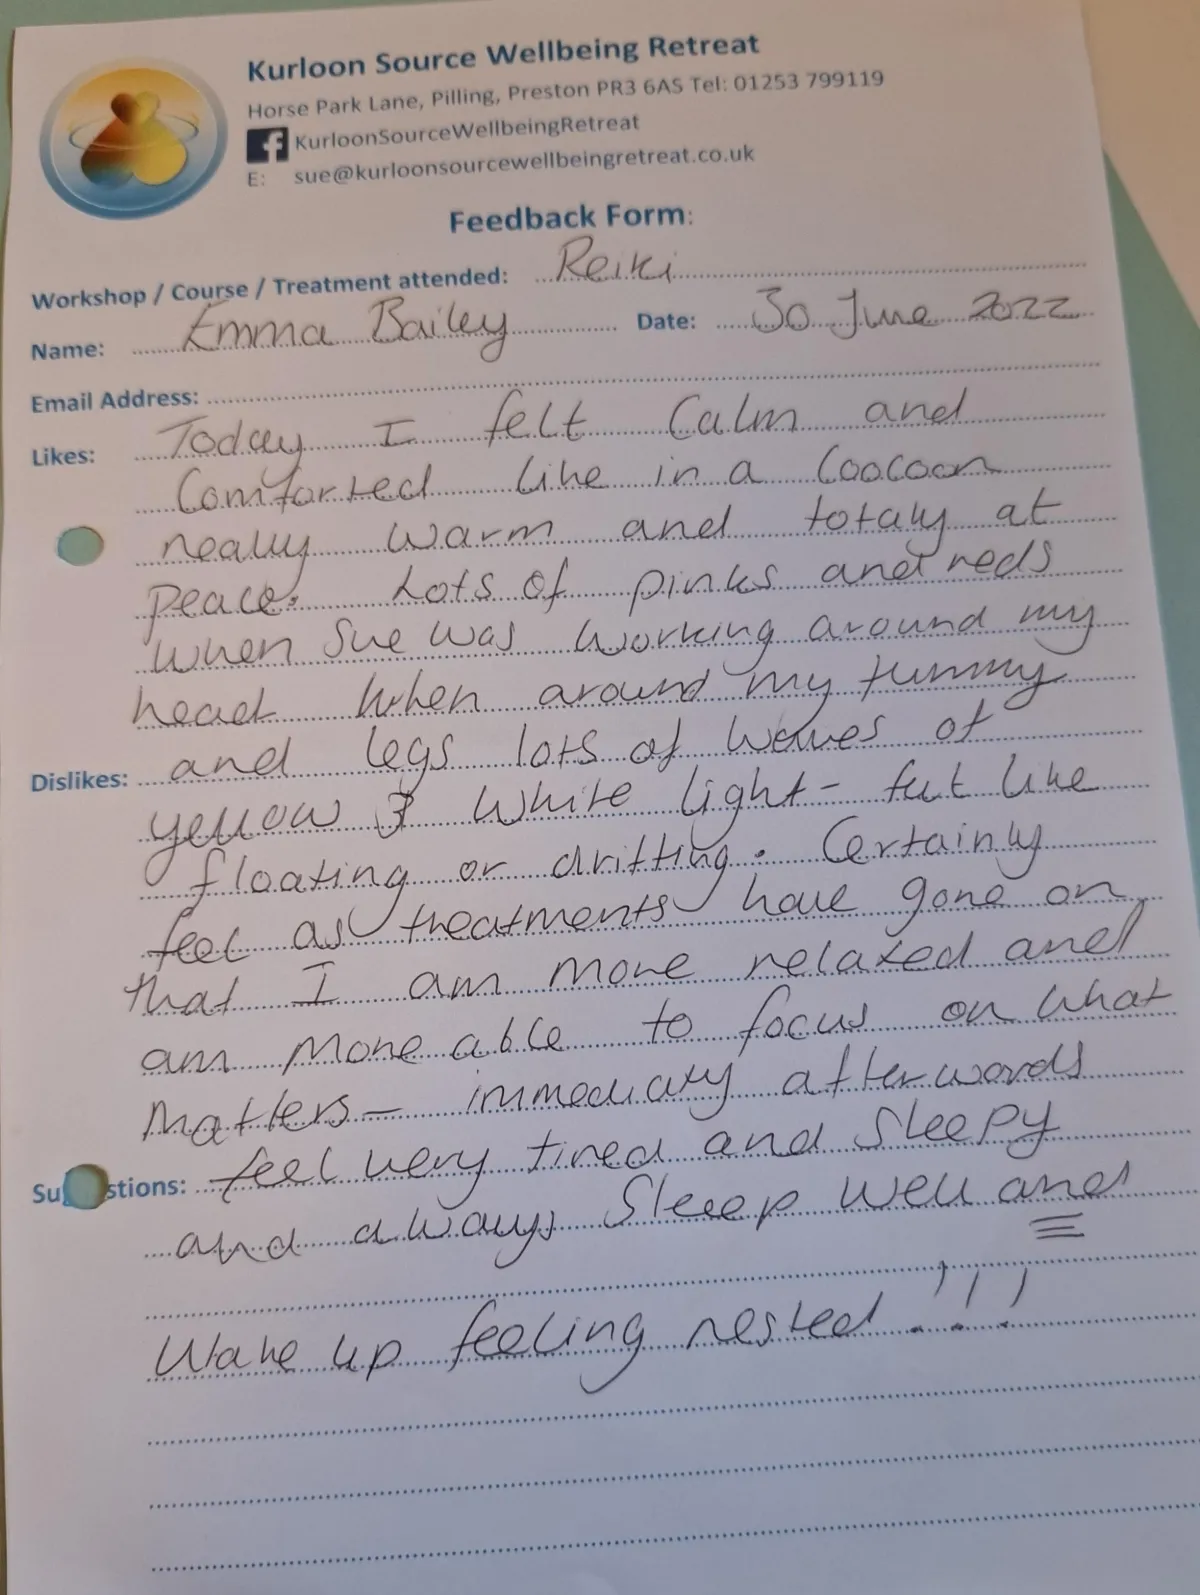 Kurloon Source Wellbeing Retreat
Horse Park Lane, Pilling, Preston PR3 6AS Tel: 01253 799119
KurloonSourceWellbeingRetreat
E: sue@kurloonsourcewellbeingretreat.co.uk
Feedback Form:
Workshop / Course / Treatment attended: Reiki
Name: Emma Bailey Date: 30 June 2022
Email Address:
Likes: Today I felt Calm and
Comforted like in a Coocoon
really warm and totaly at
Peace. Lots of pinks and reds
when Sue was working around my
head when around my tummy
Dislikes: and legs lots of waves of
yellow & white light - felt like
floating or drifting. Certainly
feel as treatments have gone on
that I am more relaxed and
am more able to focus on what
matters - immediatly afterwords
Su stions: feel very tired and sleepy
and always Sleep well and
Wake up feeling rested !!!